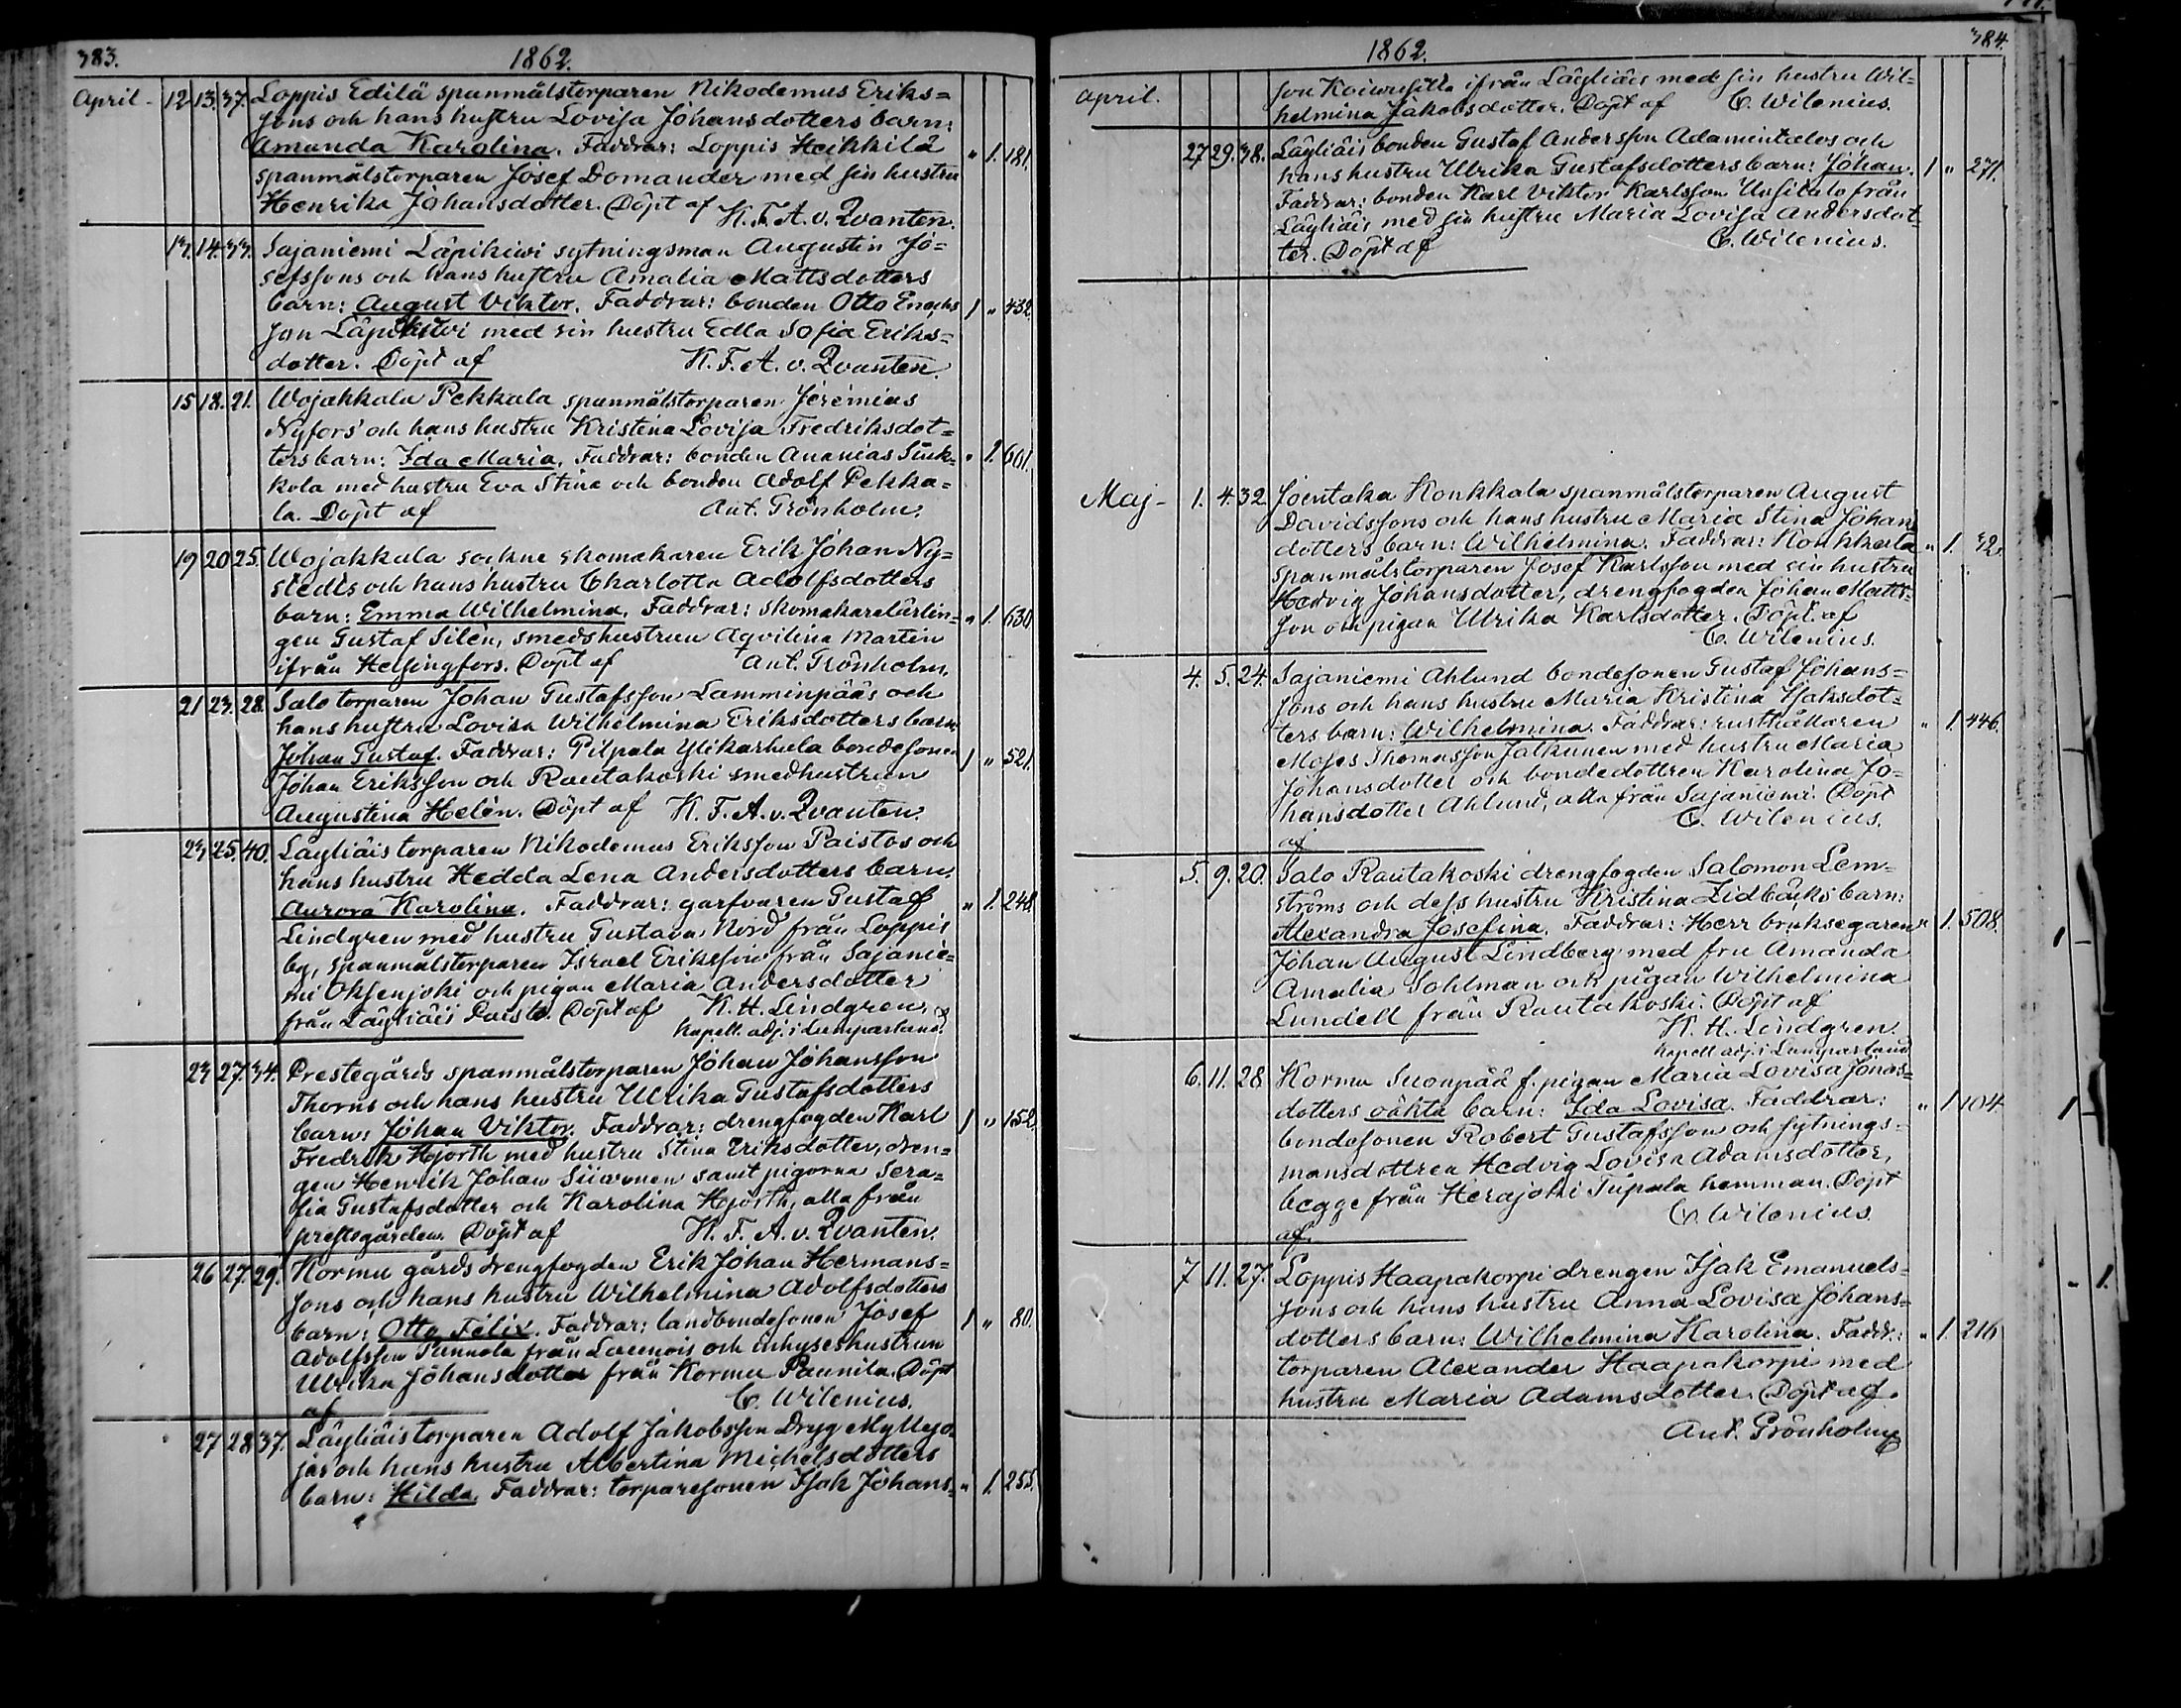 383.
1862.
April - 12 13. 37. Loppis Edilä spanmålstorparen Nikodemus Eriks=
sons och hans hustru Lovisa Johansdotters barn:
Amanda Karolina. Faddrar: Loppis Heikkilä " 1. 181.
spanmålstorparen Josef Domander med sin hustru
Henrika Johansdotter. Döpt af K. F. A. v. Qvanten.
13. 14. 33. Sajaniemi Läpikiwi sytningsman Augustin Jo=
sefssons och hans hustru Amalia Mattsdotters
barn: August Viktor. Faddrar: bonden Otto Enochs 1 " 432.
son Läpikiwi med sin hustru Edla Sofia Eriks=
dotter. Döpt af K. F. A. v. Qvanten.
15 18. 21. Wojakkala Pekkala spanmålstorparen Jeremias
Nyfors och hans hustru Kristina Lovisa Fredriksdot=
ters barn: Ida Maria. Faddrar: bonden Ananias Siuk= " 1. 601.
kola med hustru Eva Stina och bonden Adolf Pekka=
la. Döpt af Ant. Grönholm.
19 20 25. Wojakkala sockne skomakaren Erik Johan Ny=
stedts och hans hustru Charlotta Adolfsdotters
barn: Emma Wilhelmina. Faddrar: skomakarelärlin= " 1. 630.
gen Gustaf Silén, smedshustrun Aqvilina Martin
ifrån Helsingfors. Döpt af Ant. Grönholm.
21 23. 28. Salo torparen Johan Gustafsson Lamminpääs och
hans hustru Lovisa Wilhelmina Eriksdotters barn
Johan Gustaf. Faddrar: Pilpala Ylikarhula bondesonen 1 " 521.
Johan Eriksson och Rautakoski smedhustrun
Augustina Helén. Döpt af K. F. A. v. Qvanten.
23 25. 40. Läyliäis torparen Nikodemus Eriksson Paistos och
hans hustru Hedda Lena Andersdotters barn.
Aurora Karolina. Faddrar: garfvaren Gustaf " 1. 248.
Lindgren med hustru Gustava Nord från Loppis
by, spanmålstorparen Israel Eriksson från Sajanie=
mi Oksenjoki och pigan Maria Andersdotter
från Läyliäis Paisto. Döpt af K. H. Lindgren,
kapell. adj. i Lumparland.
23 27. 34. Prestegårds spanmålstorparen Johan Johansson
Thorns och hans hustru Ulrika Gustafsdotters
barn: Johan Viktor. Faddrar: drengfogden Karl 1 " 152.
Fredrik Hjorth med hustru Stina Eriksdotter, dren=
gen Henrik Johan Siivonen samt pigorna Sera=
fia Gustafsdotter och Karolina Hjorth, alla från
prestgården. Döpt af K. F. A. v. Qvanten.
26 27. 29. Kormu gårds drengfogden Erik Johan Hermans=
sons och hans hustru Wilhelmina Adolfsdotters
barn: Otto Felix. Faddrar: landbondesonen Josef 1 " 80.
Adolfsson Pannola från Launois och inhyseshustrun
Ulrika Johansdotter från Kormu Paunila. Döpt
af C. Wilenius.
27 28 37. Läyliäis torparen Adolf Jakobsson Dryg Myllyo=
jas och hans hustru Albertina Michelsdotters
barn: Hilda. Faddrar: torparesonen Isak Johans= " 1. 255.
384.
1862.
April. son Koiwusilta ifrån Läyliäis med sin hustru Wil=
helmina Jakobsdotter. Döpt af C. Wilenius.
27 29. 38. Läyliäis bonden Gustaf Andersson Adamintalos och
hans hustru Ulrika Gustafsdotters barn: Johan. 1 " 271.
Faddrar: bonden Karl Viktor Karlsson Uusitalo från
Läyliäis med sin hustru Maria Lovisa Andersdot=
ter. Döpt af C. Wilenius.
Maj - 1. 4. 32 Joentaka Konkkala spanmålstorparen August
Davidssons och hans hustru Maria Stina Johans
dotters barn: Wilhelmina. Faddrar: Konkkala " 1. 32.
spanmålstorparen Josef Karlsson med sin hustru
Hedvig Johansdotter, drengfogden Johan Matts=
son och pigan Ulrika Karlsdotter. Döpt af
C. Wilenius.
4. 5. 24. Sajaniemi Ahlund bondesonen Gustaf Johans=
sons och hans hustru Maria Kristina Isaksdot=
ters barn: Wilhelmina. Faddrar: rusthållaren " 1 446.
Moses Thomasson Jalkunen med hustru Maria
Johansdotter och bondedottren Karolina Jo=
hansdotter Ahlund, alla från Sajaniemi. Döpt
af C. Wilenius.
5. 9. 20. Salo Rautakoski drengfogden Salomon Lem=
ströms och dess hustru Kristina Lidbäcks barn:
Alexandra Josefina. Faddrar: Herr bruksegaren " 1. 508.
Johan August Lindberg med fru Amanda
Amalia Sohlman och pigan Wilhelmina
Lundell från Rautakoski. Döpt af
K. H. Lindgren.
kapell adj. i Lumparland
6. 11. 28 Kormu Suonpää f. pigan Maria Lovisa Jonas=
dotters oäkta barn: Ida Lovisa. Faddrar: " 1 104
bondesonen Robert Gustafsson och sytnings=
mansdottren Hedvig Lovisa Adamsdotter,
begge från Hirajoki Tupala hemman. Döpt
af. C. Wilenius
7 11. 27. Loppis Haapakorpi drengen Isak Emanuels=
sons och hans hustru Anna Lovisa Johans=
dotters barn: Wilhelmina Karolina. Faddr.: " 1. 216
torparen Alexander Haapakorpi med
hustru Maria Adamsdotter. Döpt af.
Ant. Grönholm